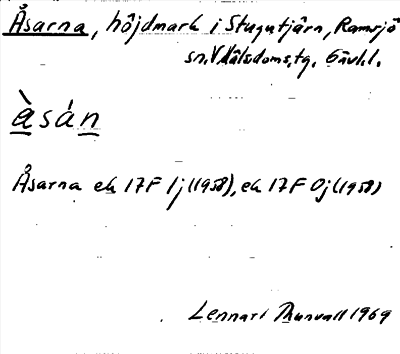 Åsarna, höjdmark i Stugutjärn, Ramsjö
sn, V. Häls. doms. tg. Gävl. l.
àsán
Åsarna ek 17F 1j (1958), ek 17F 0j (1958)
Lennart Thunvall 1969